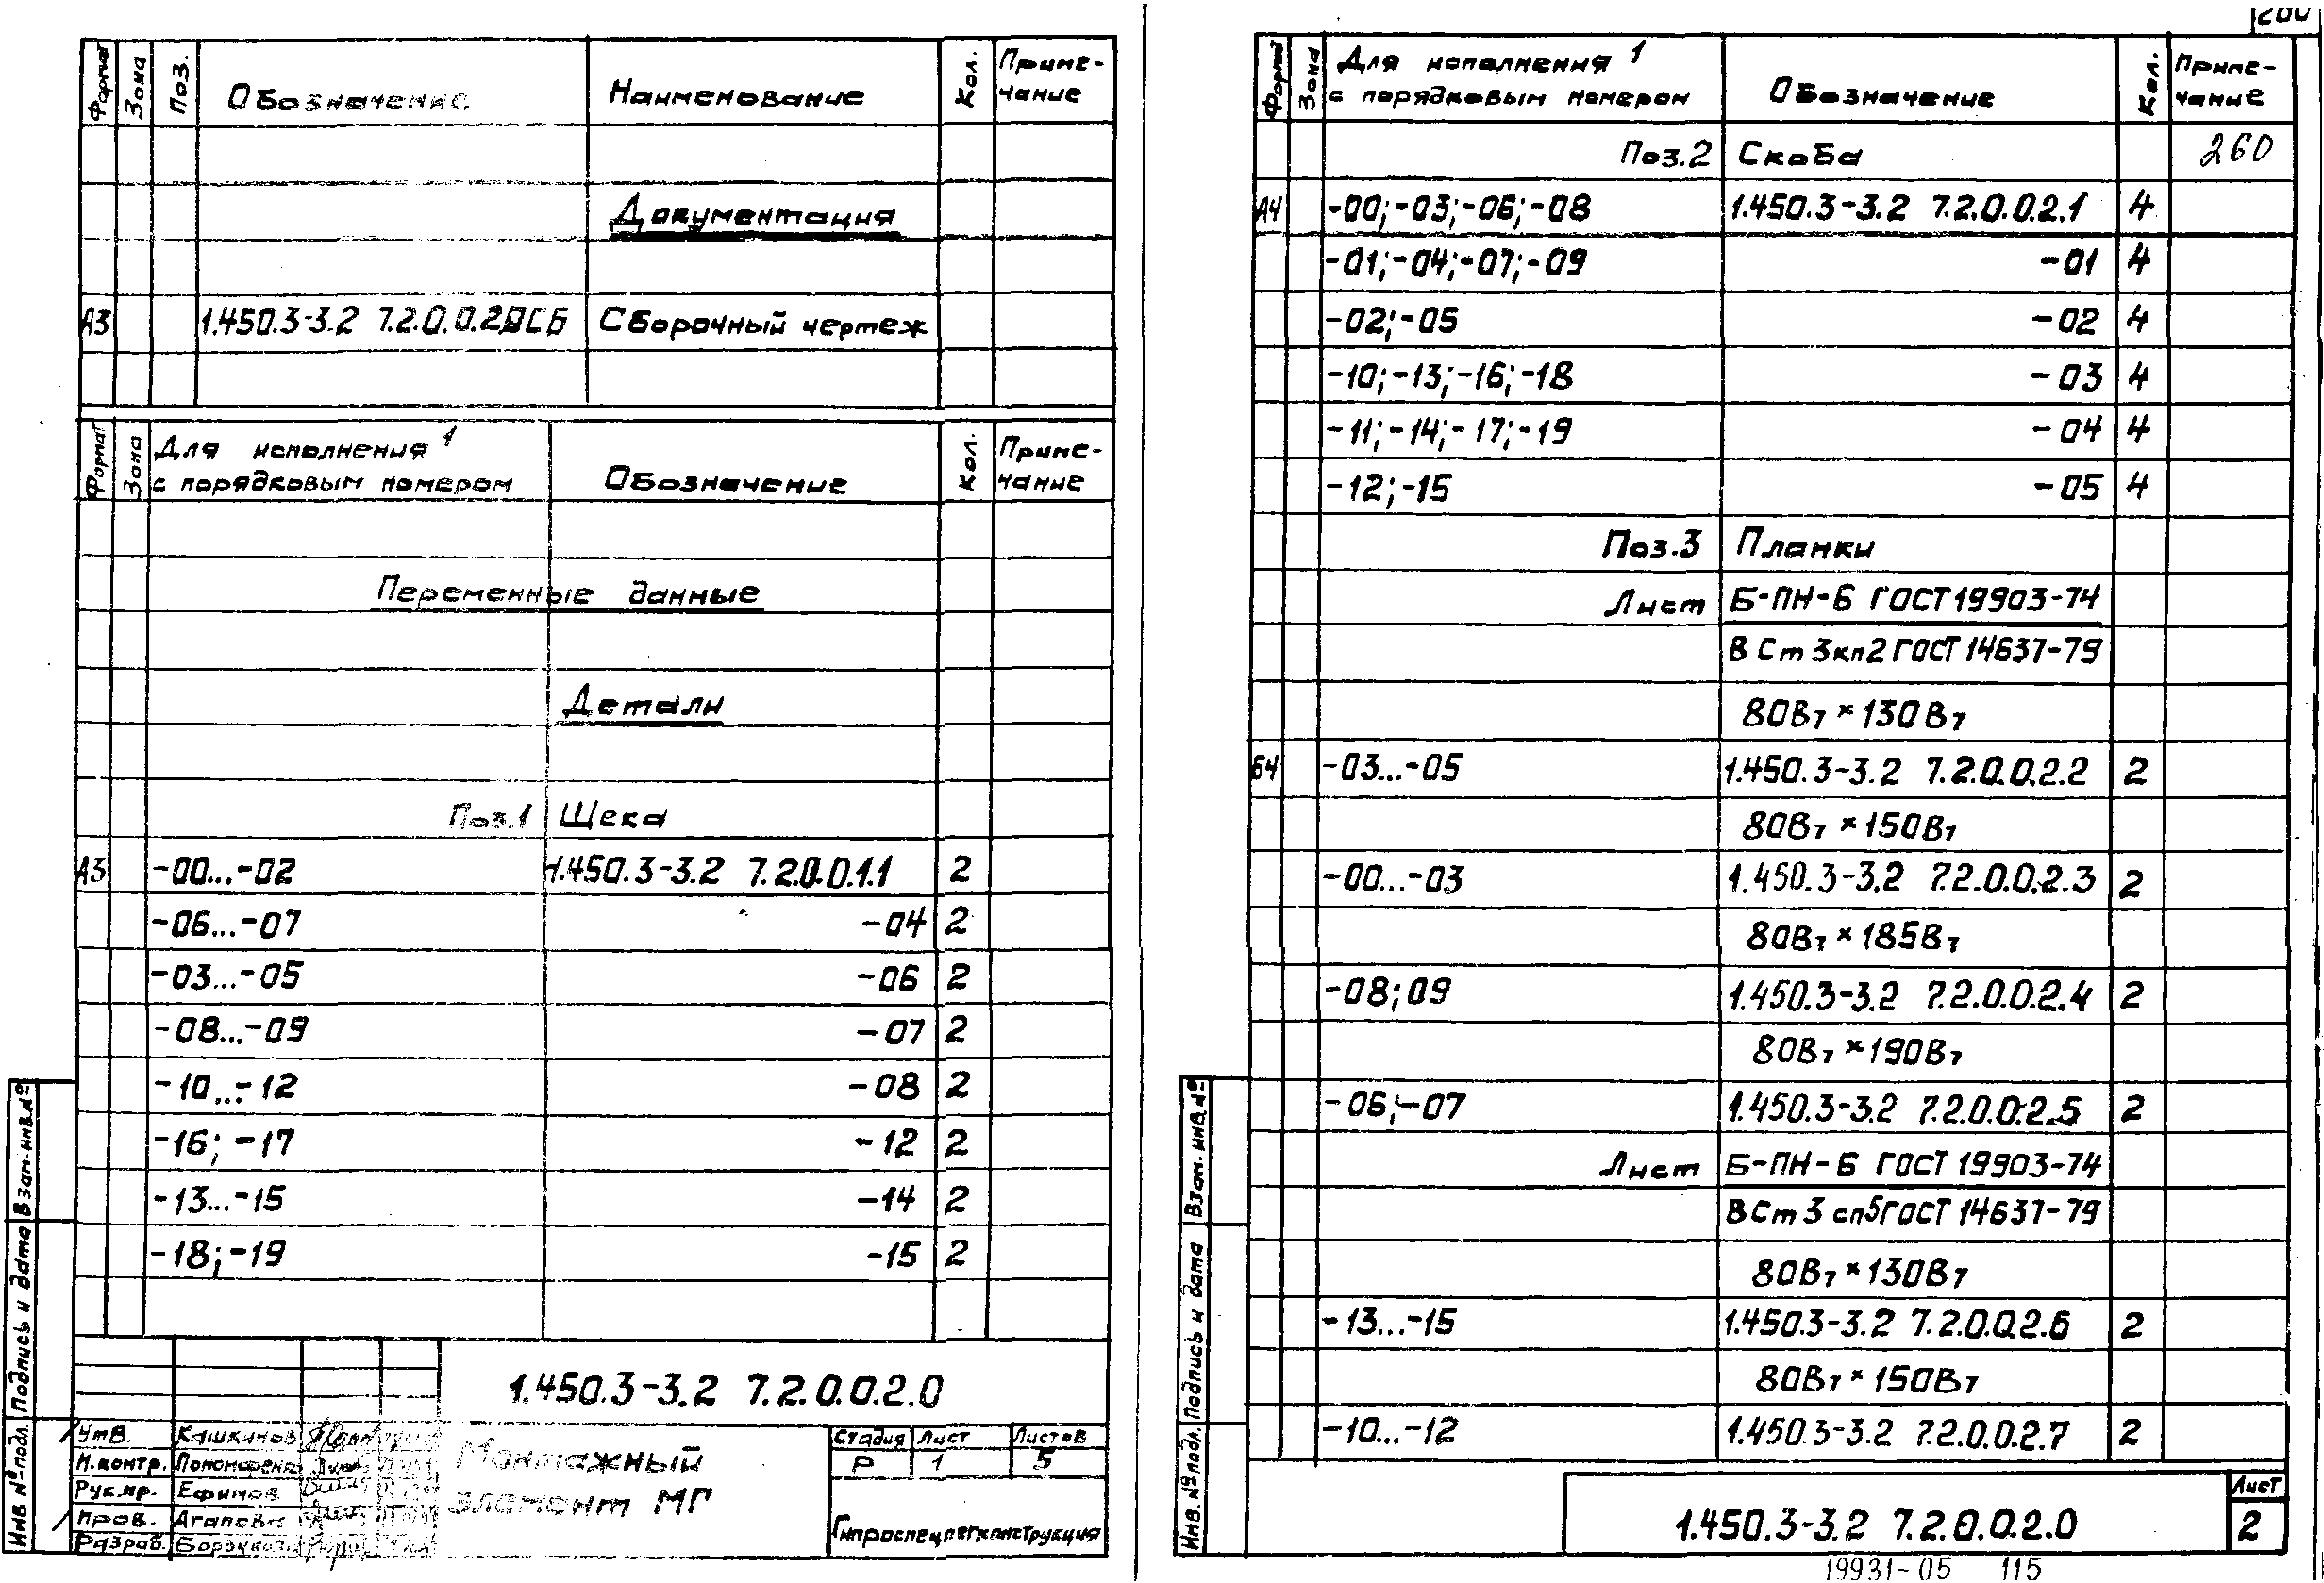 Формат Зона Поз. Обозначение Наименование Кол. Приме-
чание
Документация
А3 1.450.3-3.2 7.2.0.0.2.0СБ Сборочный чертеж
Формат Зона Для исполнения 1
с порядковым номером Обозначение Кол. Приме-
чание
Переменные данные
Детали
Поз.1 Щека
А3 -00...-02 1.450.3-3.2 7.2.0.0.1.1 2
-06...-07 -04 2
-03...-05 -06 2
-08...-09 -07 2
-10...-12 -08 2
-16; -17 -12 2
-13...-15 -14 2
-18;-19 -15 2
1.450.3-3.2 7.2.0.0.2.0
Утв. Кашканов
Н.контр. Пономаренко
Рук.мр. Ефимов
Пров. Агапов
Разраб.
Монтажный
элемент МГ
Стадия Лист Листов
Р 1 5
Гипроспецлегконструкция
Инв.№ подл. Подпись и дата Взам.инв.№
Формат Зона Для исполнения 1
с порядковым номером Обозначение Кол. Приме-
чание
Поз.2 Скоба 260
А4 -00;-03;-06;-08 1.450.3-3.2 7.2.0.0.2.1 4
-01;-04;-07;-09 -01 4
-02;-05 -02 4
-10;-13;-16;-18 -03 4
-11;-14;-17;-19 -04 4
-12;-15 -05 4
Поз.3 Планки
Лист Б-ПН-6 ГОСТ 19903-74
В Ст 3кп2 ГОСТ 14637-79
80В7 × 130В7
Б4 -03...-05 1.450.3-3.2 7.2.0.0.2.2 2
80В7 × 150В7
-00...-03 1.450.3-3.2 7.2.0.0.2.3 2
80В7 × 185В7
-08;09 1.450.3-3.2 7.2.0.0.2.4 2
80В7 × 190В7
-06;-07 1.450.3-3.2 7.2.0.0.2.5 2
Лист Б-ПН-6 ГОСТ 19903-74
ВСт 3 сп5 ГОСТ 14637-79
80В7 × 130В7
-13...-15 1.450.3-3.2 7.2.0.0.2.6 2
80В7 × 150В7
-10...-12 1.450.3-3.2 7.2.0.0.2.7 2
1.450.3-3.2 7.2.0.0.2.0
Лист
2
Инв. № подл. Подпись и дата Взам. инв.№
19931-05 115